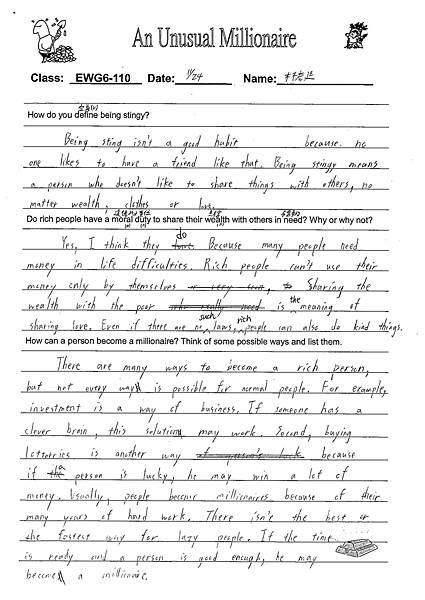 An Unusual Millionaire
Class: EWG6-110 Date: 11/24 Name:
How do you define being stingy?
Being sting isn't a good habit because no
one likes to have a friend like that. Being stingy means
a person who doesn't like to share things with others, no
matter wealth, clothes or love.
Do rich people have a moral duty to share their wealth with others in need? Why or why not?
Yes, I think they do. Because many people need
money in life difficulties. Rich people can't use their
money only by themselves. Sharing the
wealth with the poor is the meaning of
sharing love. Even if there are no such laws, rich people can also do kind things.
How can a person become a millionaire? Think of some possible ways and list them.
There are many ways to become a rich person,
but not every way is possible for normal people. For example,
investment is a way of business. If someone has a
clever brain, this solution may work. Second, buying
lotteries is another way because
if a person is lucky, he may win a lot of
money. Usually, people become millionaires because of their
many years of hard work. There isn't the best or
the fastest way for lazy people. If the time
is ready and a person is good enough, he may
become a millionaire.